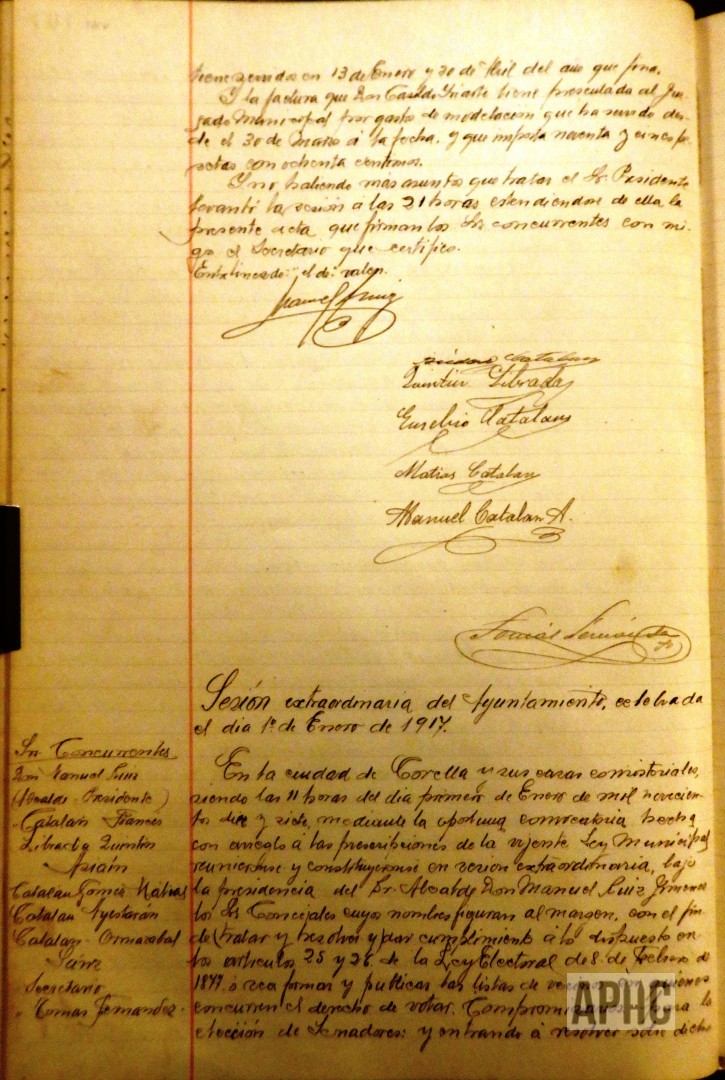 en 13 de Enero y 30 de Abril del año que fina.
Y la factura que Don Casildo Iriarte tiene presentada al Juz-
gado Municipal por gasto de modelacion que ha servido des-
de el 30 de Marzo á la fecha, y que importa noventa y cinco pe-
setas con ochenta centimos.
Y no habiendo más asuntos que tratar el Sr. Presidente
levantó la sesión a las 21 horas extendiendose de ella la
presente acta que firman los Srs concurrentes con mi-
go el Secretario que certifico.
Entrelineado: "el de" valen.
Manuel Ruiz
Catalan
Quintin Librada
Eusebio Catalan
Matias Catalan
Manuel Catalan A.
Tomás Fernández
Sesión extraordinaria del Ayuntamiento, celebrada
el dia 1º de Enero de 1917.
Srs Concurrentes
Don Manuel Ruiz
(Alcalde-Presidente)
" Catalán Francés
Librada Quintín
Catalan Gomez Matias
Catalan Ayestarán
Catalan Ormazabal
Sainz
Secretario
" Tomas Fernandez
En la ciudad de Corella y sus casas consistoriales,
siendo las 11 horas del día primero de Enero de mil novecien-
tos diez y siete, mediante la oportuna convocatoria hecha
con arreglo á las prescripciones de la vijente Ley Municipal
reunieronse y constituyeronse en sesion extraordinaria, bajo
la presidencia del Sr. Alcalde Don Manuel Ruiz Jimenez
los Srs Concejales cuyos nombres figuran al margen, con el fin
de tratar y resolver y dar cumplimiento á lo dispuesto en
los articulos 25 y 26 de la Ley Electoral de 8 de Febrero de
1877, ó sea formar y publicar las listas de vecinos en quienes
concurren el derecho de votar Compromisarios para la
elección de Senadores: y entrando á resolver sobre dicho
APHC